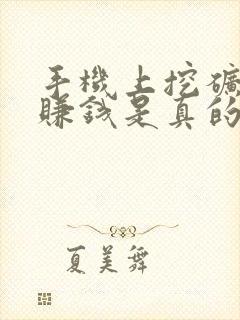 手機上挖礦
賺錢是真的
夏美舞